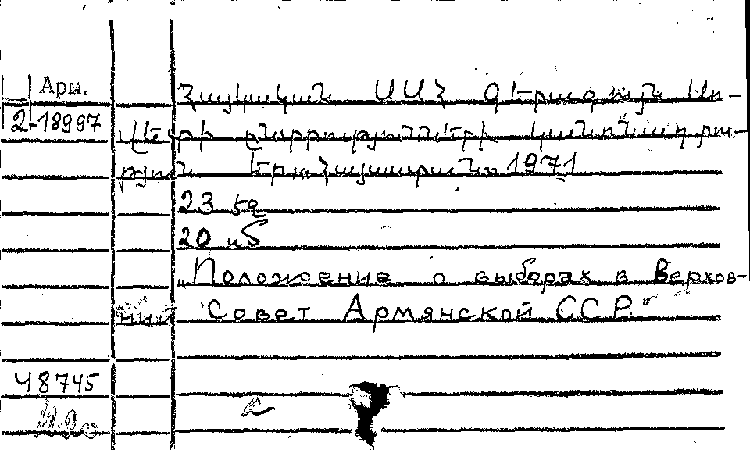 Арм.
Հայկական ՍՍՀ Գերագույն Սո-
2-18997
վետի ընտրությունների կանոնադրու-
թյուն Երևան Հայաստան 1971
23 էջ
20 աб
„Положение о выборах в Верхов-
ный Совет Армянской ССР."
48745